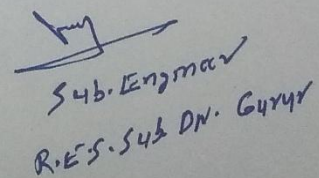 Sub. Engineer
R.E.S. Sub DN. Gurur